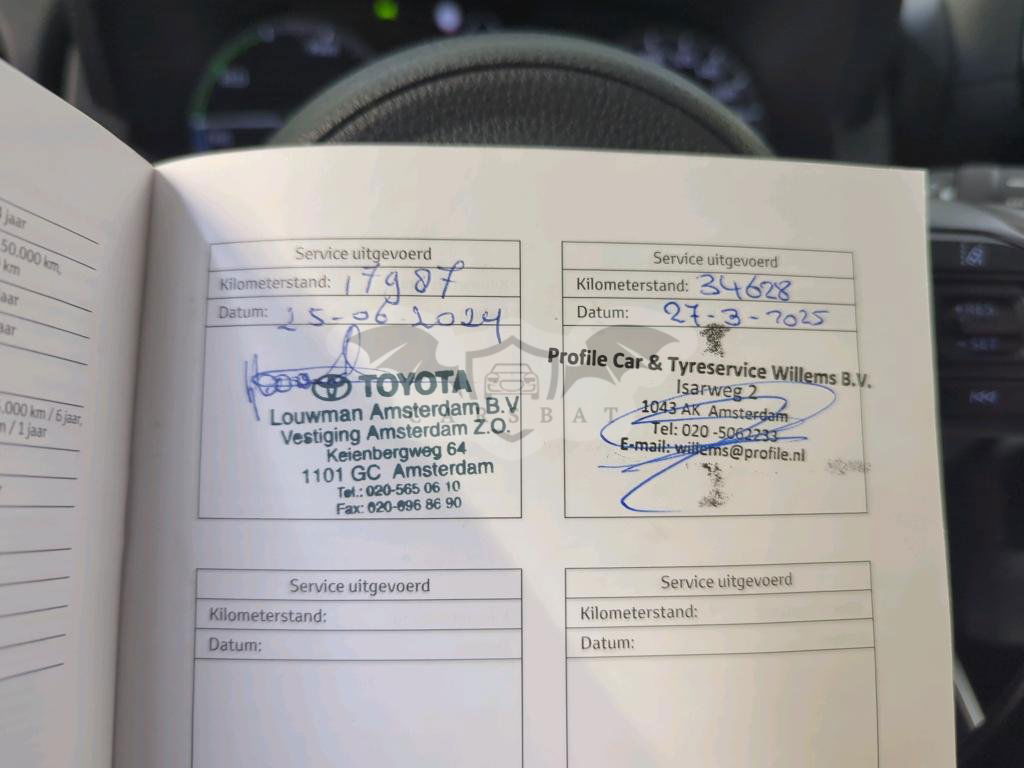 jaar
50.000 km,
km
aar
aar
.000 km / 6 jaar,
m / 1 jaar
Service uitgevoerd
Kilometerstand: 17987
Datum: 25-06-2024
TOYOTA
Louwman Amsterdam B.V
Vestiging Amsterdam Z.O.
Keienbergweg 64
1101 GC Amsterdam
Tel.: 020-565 06 10
Fax: 020-696 86 90
Service uitgevoerd
Kilometerstand: 34628
Datum: 27-3-2025
Profile Car & Tyreservice Willems B.V.
Isarweg 2
1043 AK Amsterdam
Tel: 020 -5062233
E-mail: willems@profile.nl
CARSBAT
Service uitgevoerd
Kilometerstand:
Datum:
Service uitgevoerd
Kilometerstand:
Datum: